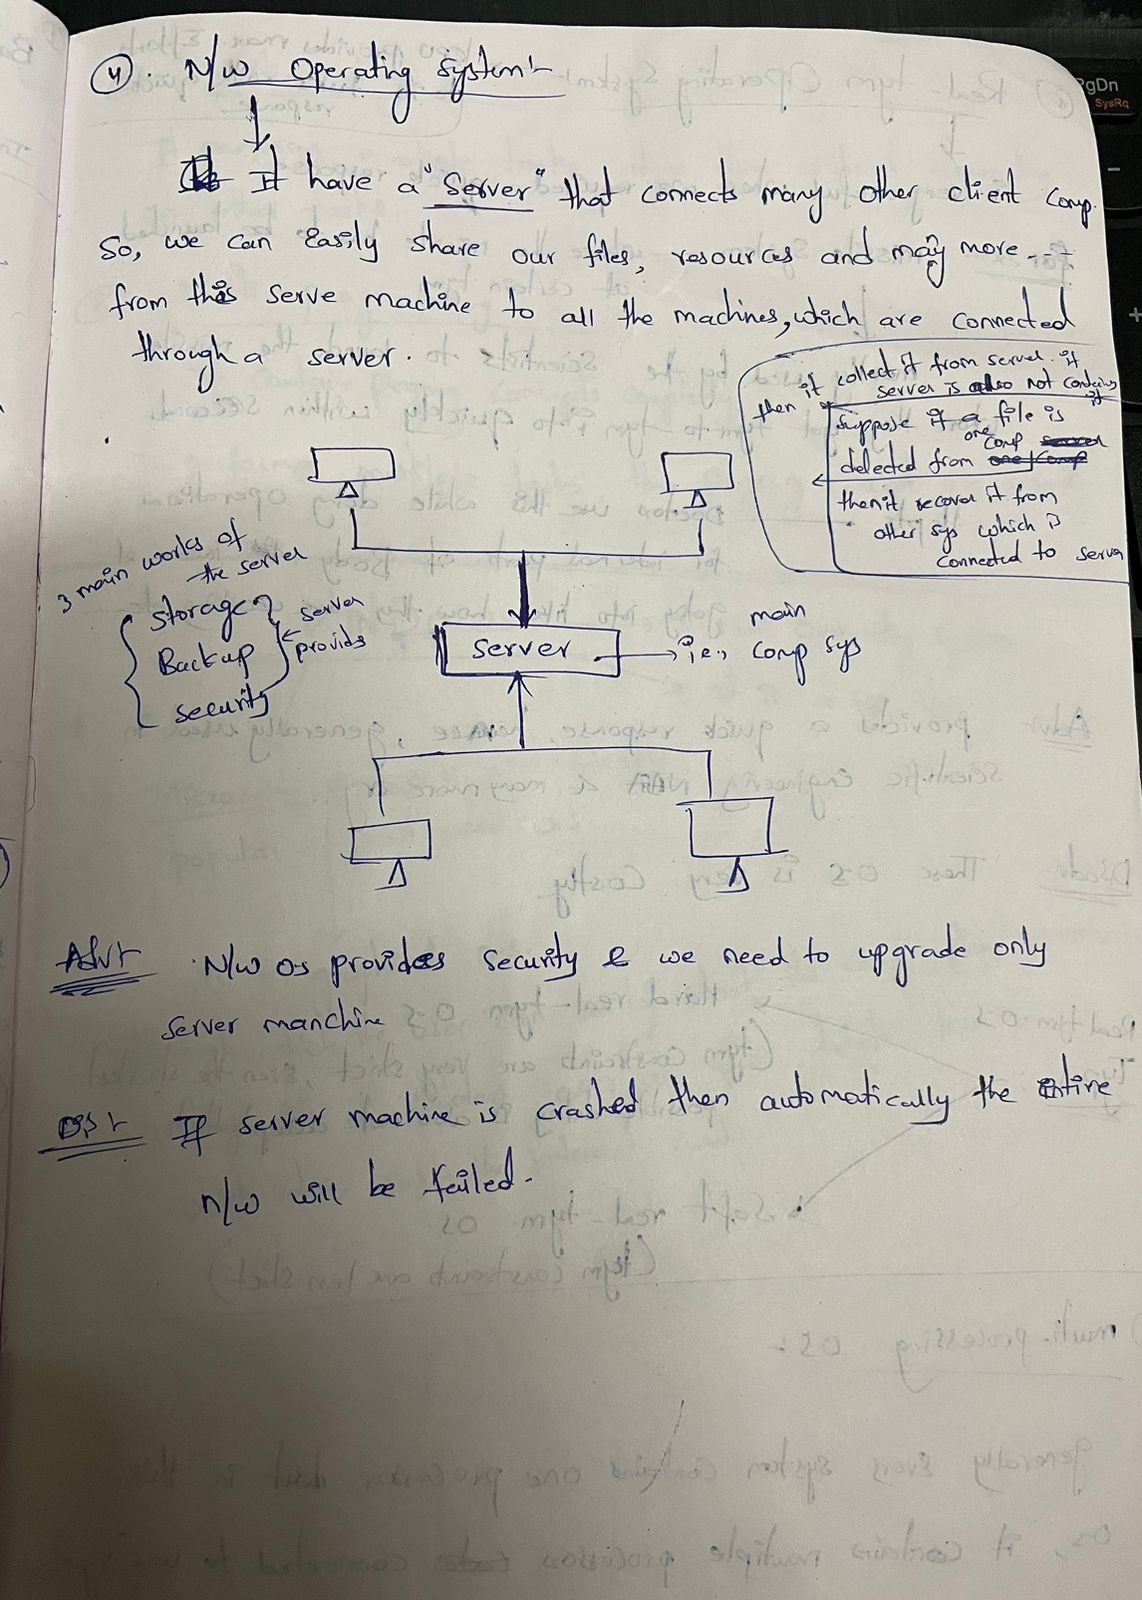 4. N/w Operating System:-
It have a "Server" that connects many other client comp.
So, we can Easily share our files, resources and may more...
from this serve machine to all the machines, which are connected
through a server.
then it collect it from server. if
server is also not contains it
Suppose if a file is
delected from one comp
then it recover it from
other sys which is
connected to server
3 main works of
the server
Storage
Backup
security
server
provids
Server
i.e., main comp sys
Adv:- N/w os provides security & we need to upgrade only
server manchine
DIS:- If server machine is crashed then automatically the entire
n/w will be failed.
PgDn
SysRq